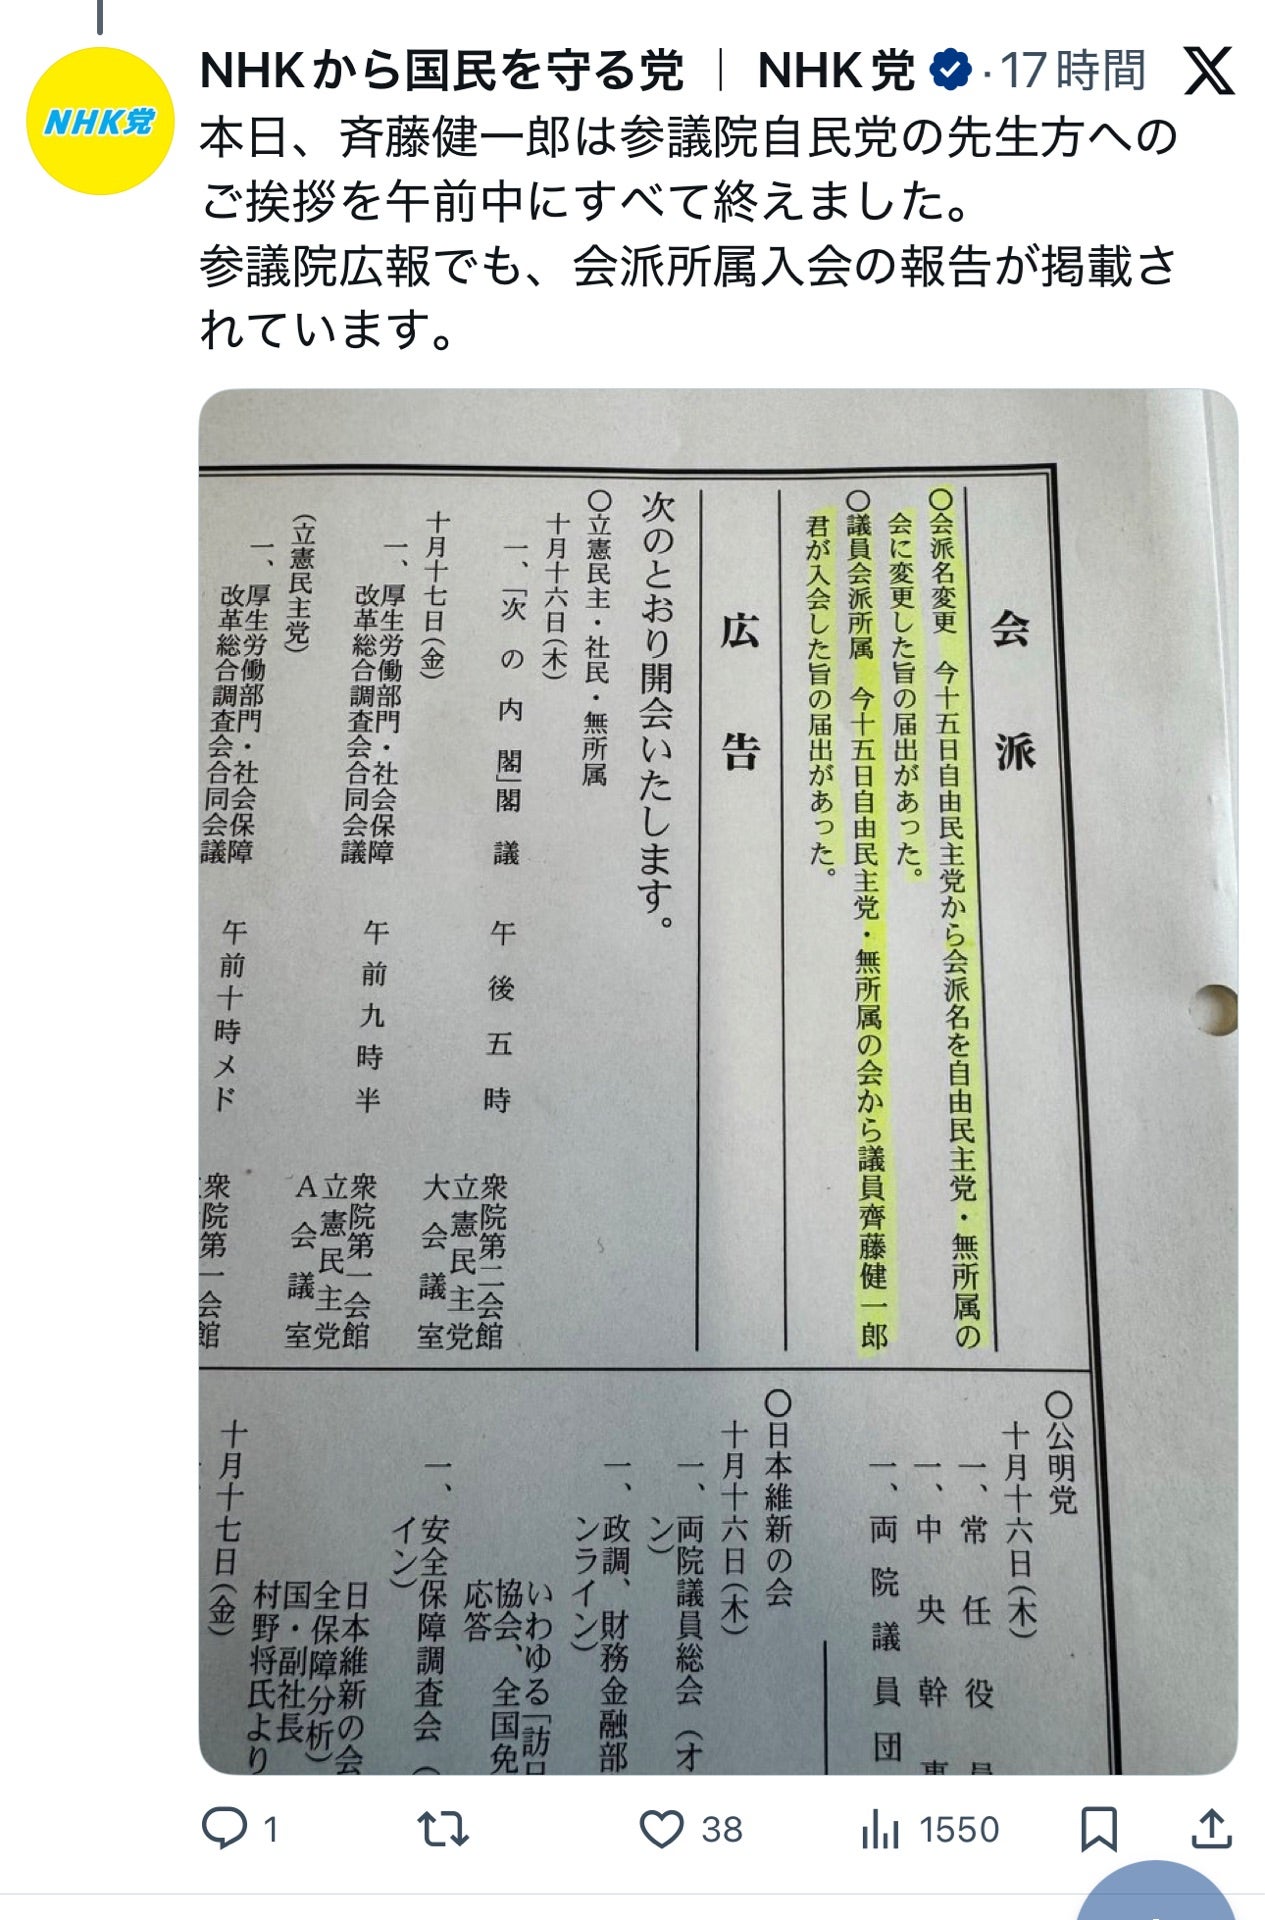 NHKから国民を守る党 ｜ NHK党 · 17時間
NHK党
本日、斉藤健一郎は参議院自民党の先生方への
ご挨拶を午前中にすべて終えました。
参議院広報でも、会派所属入会の報告が掲載さ
れています。
会派
〇会派名変更　今十五日自由民主党から会派名を自由民主党・無所属の
会に変更した旨の届出があった。
〇議員会派所属　今十五日自由民主党・無所属の会から議員齊藤健一郎
君が入会した旨の届出があった。
広告
次のとおり開会いたします。
〇立憲民主・社民・無所属
十月十六日（木）
一、「次の内閣」閣議　午後五時　衆院第二会館
立憲民主党
大会議室
十月十七日（金）
一、厚生労働部門・社会保障
改革総合調査会合同会議　午前九時半　衆院第一会館
立憲民主党
A会議室
（立憲民主党）
一、厚生労働部門・社会保障
改革総合調査会合同会議　午前十時メド　衆院第一会館
〇公明党
十月十六日（木）
一、常任役員
一、中央幹事
一、両院議員団
〇日本維新の会
十月十六日（木）
一、両院議員総会（オ
ン）
一、政調、財務金融部
ンライン）
いわゆる「訪日
協会、全国免
応答
一、安全保障調査会（
イン）
日本維新の会
全保障分析）
国・副社長
村野将氏より
十月十七日（金）
1
38
1550